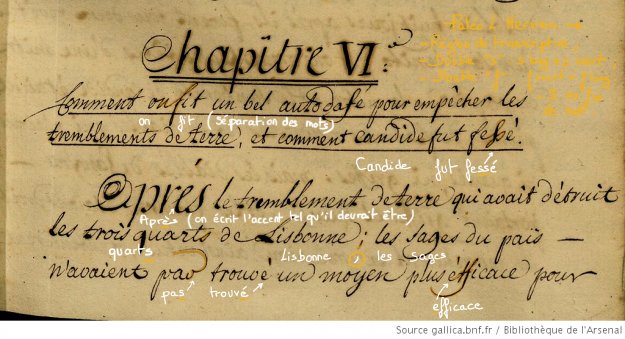 Chapître VI.e
Comment onfit un bel autodafé pour empêcher les
on fit (séparation des mots)
tremblements de terre, et comment candide fut fessé.
Candide fut fessé
Après le tremblement de terre qui avait détruit
Après (on écrit l'accent tel qu'il devrait être)
les trois quarts de Lisbonne; les sages du païs —
quarts Lisbonne ; les sages
n'avaient pas trouvé un moyen plus éfficace pour
pas trouvé éfficace
Source gallica.bnf.fr / Bibliothèque de l'Arsenal